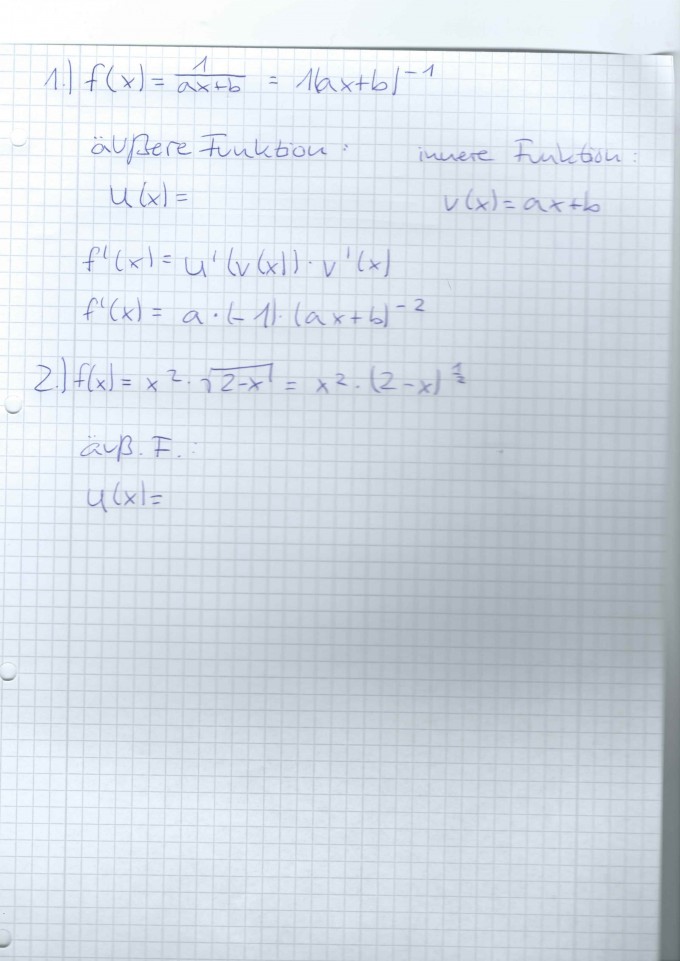 1.) f(x) = 1/(ax+b) = 1(ax+b)^-1
äußere Funktion: innere Funktion:
u(x) = v(x) = ax+b
f'(x) = u'(v(x)) · v'(x)
f'(x) = a · (-1) · (ax+b)^-2
2.) f(x) = x² · √(2-x) = x² · (2-x)^1/2
äuß. F.:
u(x) =